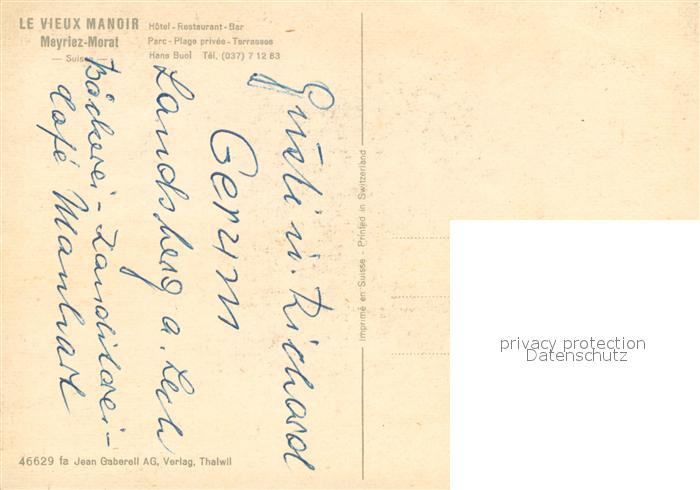 LE VIEUX MANOIR
Meyriez-Morat
— Suisse —
Hôtel - Restaurant - Bar
Parc - Plage privée - Terrasses
Hans Buol Tél. (037) 7 12 83
Gusti u. Richard
Gerum
Landsberg a. Lech
Bäckerei - Konditorei -
Café Manhart
Imprimé en Suisse - Printed in Switzerland
46629 fa Jean Gaberell AG, Verlag, Thalwil
privacy protection
Datenschutz